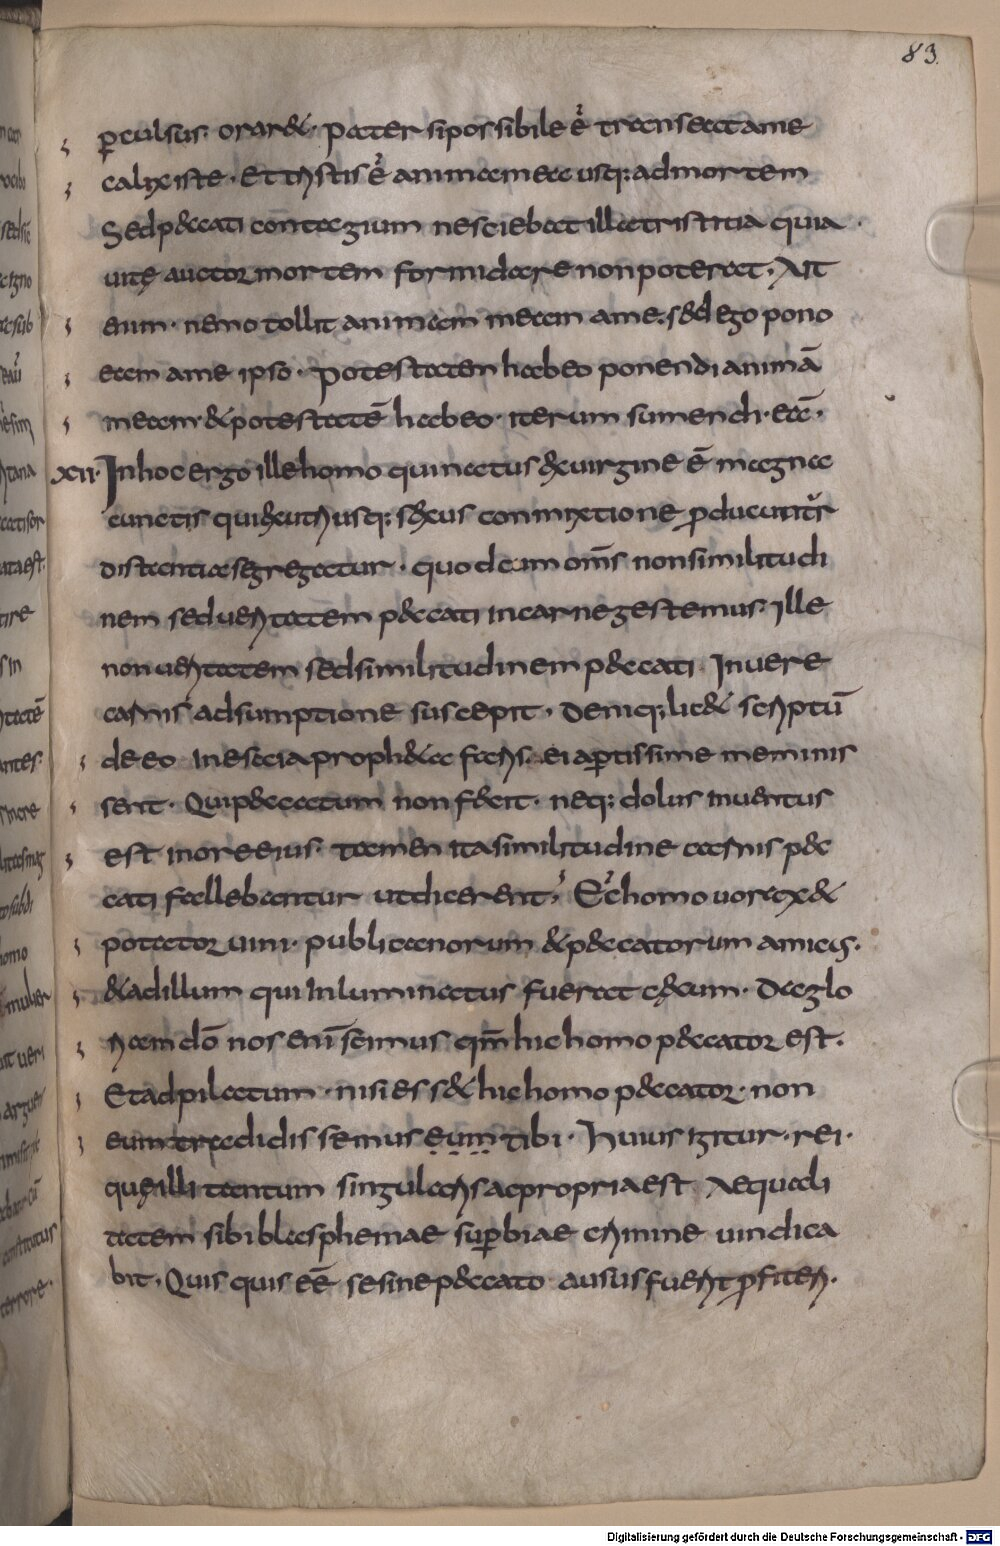 83.
ꝑculsus· orar&· Pater si possibile ẽ transeat ame
calix iste· Et tristis ẽ anima mea usq; ad mortem
Sed peccati contagium nesciebat illa tristitia quia
uitę auctor mortem formidare non poterat· Ait
enim· nemo tollit animam meam ame; sed ego pono
eam ame ipso· Potestatem habeo ponendi animā
meam· & potestatē habeo· iterum sumendi· eā·
XII· In hoc ergo ille homo qui natus ex uirgine ē magna
cunctis qui ex utriusq; sexus commixtione ꝓducuntur
distantia segregatur· quod cum om̄s non similitudi
nem sed ueritatem peccati in carne gestemus· Ille
non ueritatem sed similitudinem peccati In uere
carnis adsumptione suscepit· Deniq; lic& scriptū
de eo In esaia proph&a facris· ei aꝑtissime meminis
sent· Qui peccatum non fecit· neq; dolus inuentus
est in ore eius· tamen ita similitudine carnis pec
cati fallebantur ut dicerent· Ecce homo uorax &
potator uini· publicanorum & peccatorum amicus·
& ad illum qui Inluminatus fuerat cęcum· Da glo
riam dō nos enī scimus qm̄ hic homo peccator est·
Et ad pilatum· nisi ess& hic homo peccator· non
eum tradidissemus eum tibi· Huius igitur· rei·
quę illi tantum singularis ac propria est Aequali
tatem sibi blasphemae suꝑbiae crimine uindica
bit· Quis quis eē se sine peccato ausus fuerit ꝓfiteri·
Digitalisierung gefördert durch die Deutsche Forschungsgemeinschaft - DFG